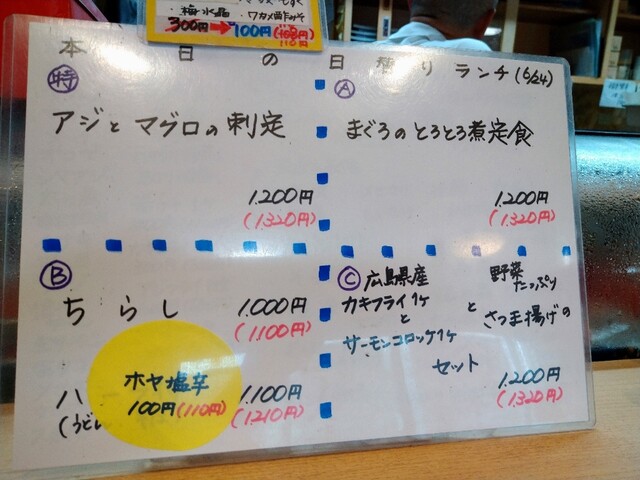 ・梅水晶 ・ワカメ酢みそ
300円→100円(110円)
本日の日替りランチ(6/24)
特
アジとマグロの刺定
1.200円
(1.320円)
A
まぐろのとろとろ煮定食
1.200円
(1.320円)
B
ちらし 1.000円
(1.100円)
ハ 1.100円
(うどん (1.210円)
ホヤ塩辛
100円(110円)
C 広島県産
カキフライ1ケ
と
サーモンコロッケ1ケ
と
野菜
たっぷり
さつま揚げの
セット
1.200円
(1.320円)